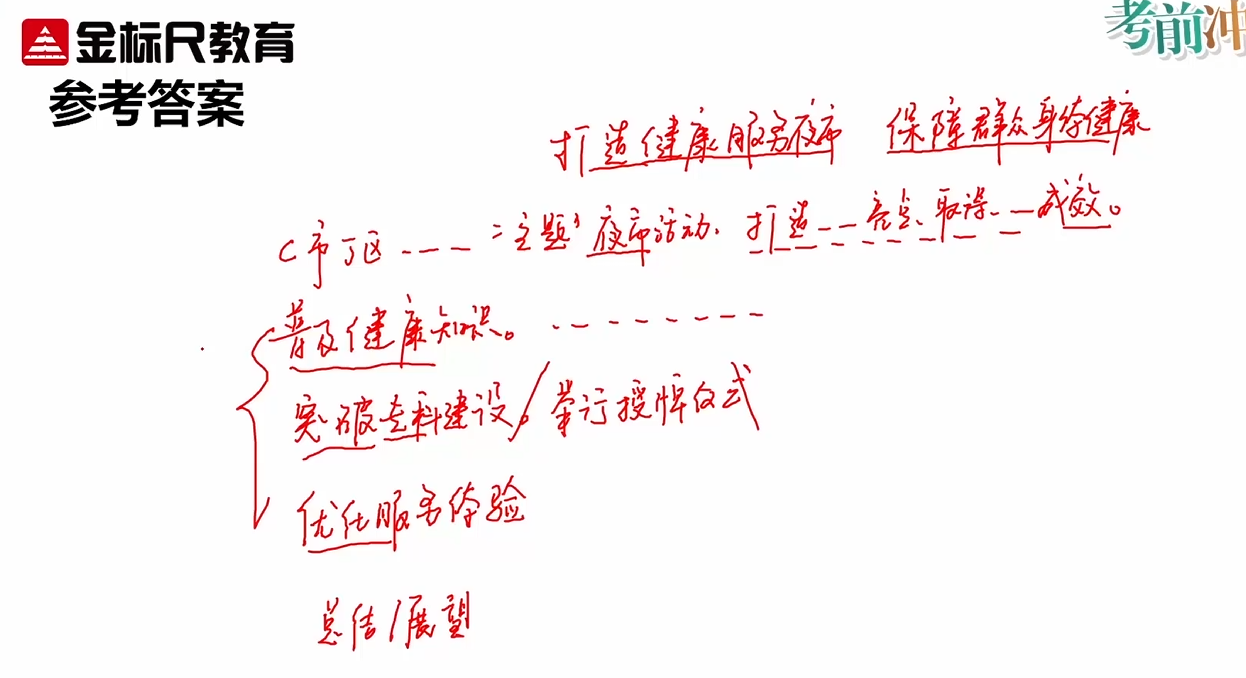 金标尺教育
考前冲
参考答案
打造健康服务夜市 保障群众身体健康
C市丁区---- "主题"夜市活动,打造---亮点,取得---成效。
普及健康知识。--------
突破专科建设。/举行授牌仪式
优化服务体验
总结/展望